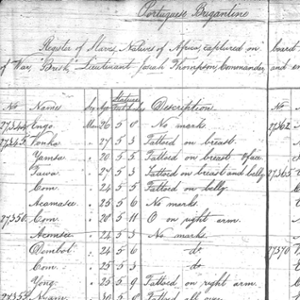 Portuguese Brigantine
Register of Slaves, Natives of Africa, captured on board
of War "Brisk," Lieutenant Josiah Thompson, Commander, and
No Names Sex Age Stature Description. No
Feet Inch
27344 Engo Man 26 5 0 No marks 27362
27345 Fonka " 27 5 3 Tattood on breast.
Yamsa " 20 5 5 Tattood on breast &face
Tawa " 27 5 3 Tattood on breast and belly 27365
Com " 24 5 5 Tattood on belly.
Acamasee " 25 5 6 No marks
27350 Com " 20 5 11 O on right arm.
" 24 5 3 No marks.
Dombol " 24 5 6 do 27370
Com " 25 5 3 do
Yong " 25 5 9 Tattood on right arm.
Tattood all over